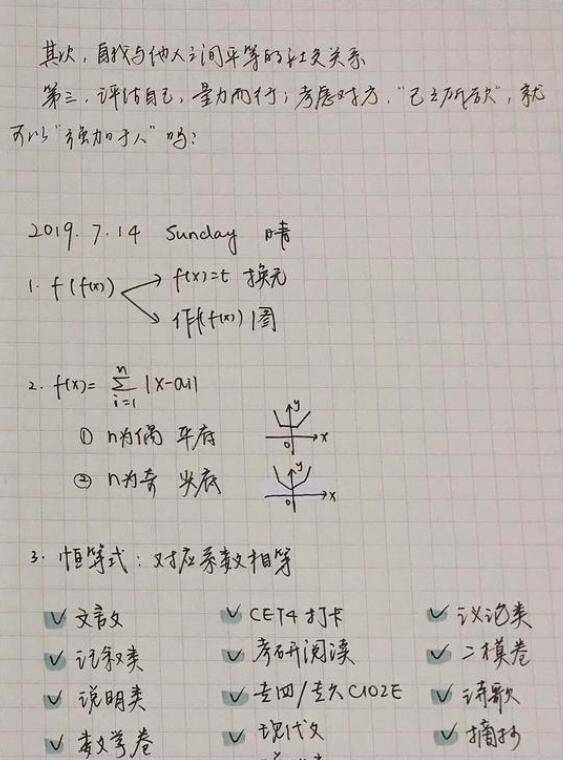 其次，自我与他人之间平等的社交关系
第三，评估自己，量力而行；考虑对方，“己之所欲”，就
可以“强加于人”吗？
2019.7.14 Sunday 晴
1. f(f(x))
f(x)=t 换元
作f(f(x))图
2. f(x)= n∑i=1 |x-ai|
① n为偶 平底
y
0
x
② n为奇 尖底
y
0
x
3. 恒等式：对应系数相等
文言文 CET4打卡 议论类
记叙类 考研阅读 二模卷
说明类 专四/专八CLOZE 诗歌
数学卷 现代文 摘抄